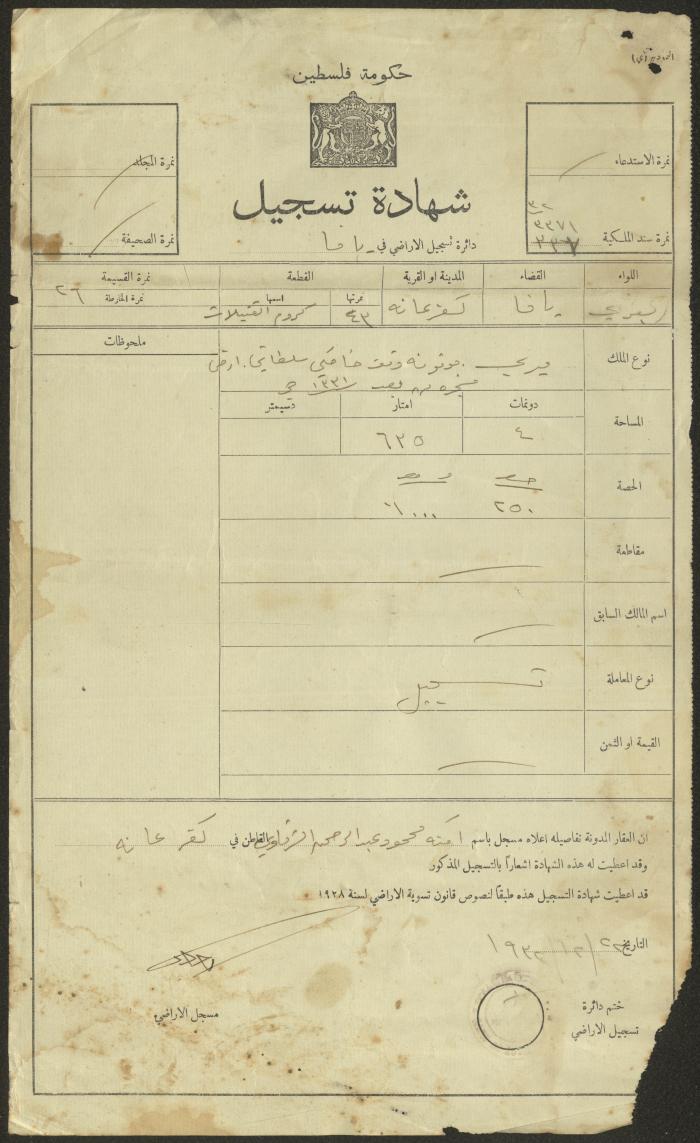 حكومة فلسطين
نمرة الاستدعاء
نمرة المجلد
شهادة تسجيل
٣٢
٣٣٧١
نمرة سند الملكية
نمرة الصحيفة
دائرة تسجيل الاراضي في يافا
اللواء القضاء المدينة او القرية القطعة نمرة القسيمة
نمرتها اسمها نمرة الخارطة
يافا كفرعانه ٤٣ كروم ٢٦
نوع الملك ميري وقف
ملحوظات
١٣٣١
دونمات امتار دسيمتر
المساحة ٤ ٦٣٥
الحصة
٢٥٠
مقاطعة
اسم المالك السابق
نوع المعاملة تسجيل
القيمة او الثمن
ان العقار المدونة تفاصيله اعلاه مسجل باسم امنه محمود عبد الرحمن القاطن في كفر عانه
وقد اعطيت له هذه الشهادة اشعاراً بالتسجيل المذكور
قد اعطيت شهادة التسجيل هذه طبقاً لنصوص قانون تسوية الاراضي لسنة ١٩٢٨
التاريخ
ختم دائرة
تسجيل الاراضي
مسجل الاراضي